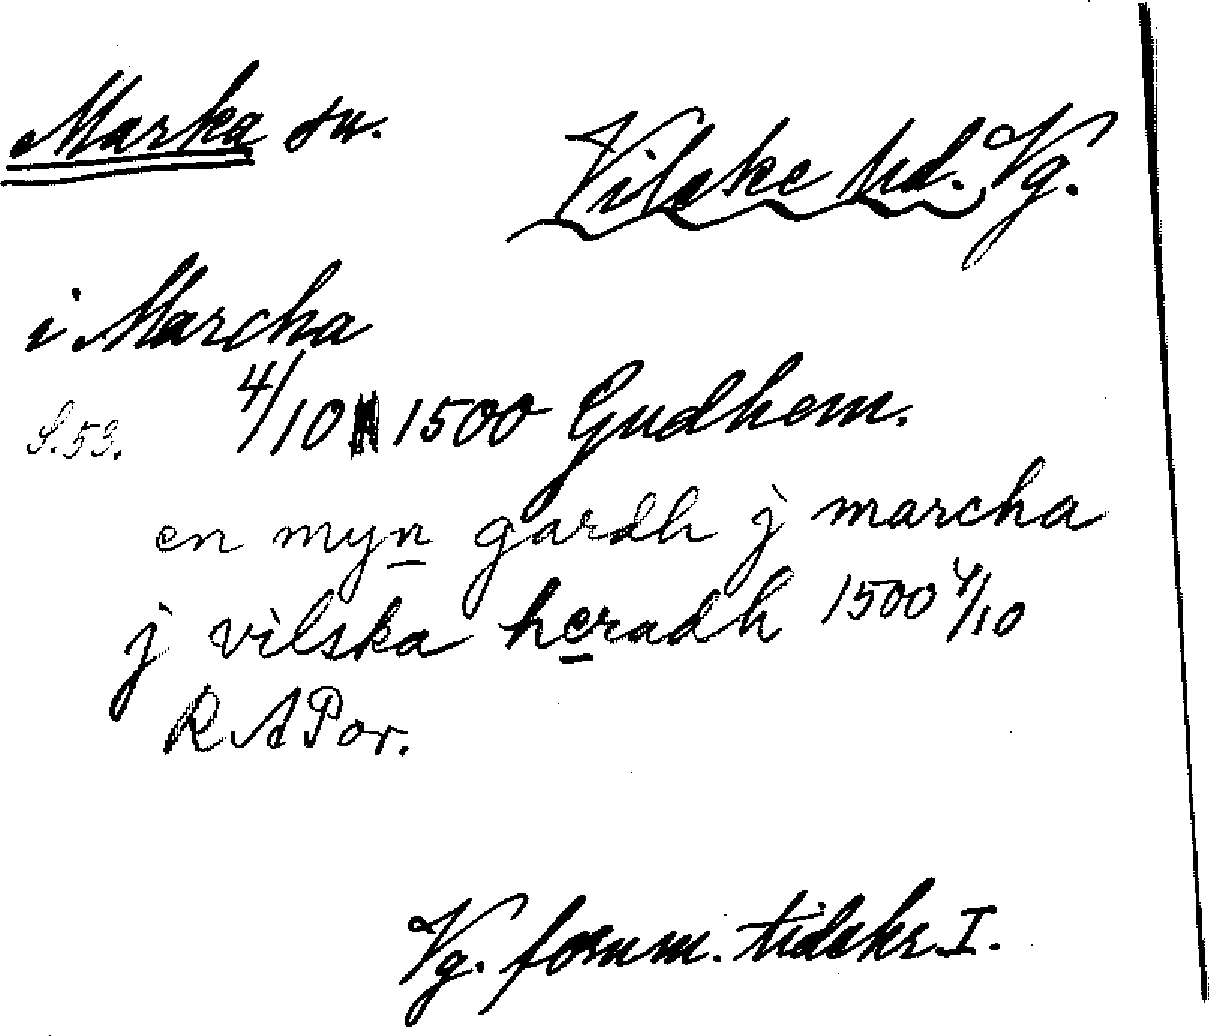 Marka sn. Vilske hd. Vg.
i Marcha
S. 53. 4/10 1500 Gudhem.
en myn gardh j marcha
j vilska heradh 1500 4/10
RAPor.
Vg. fornm. tidskr. I.